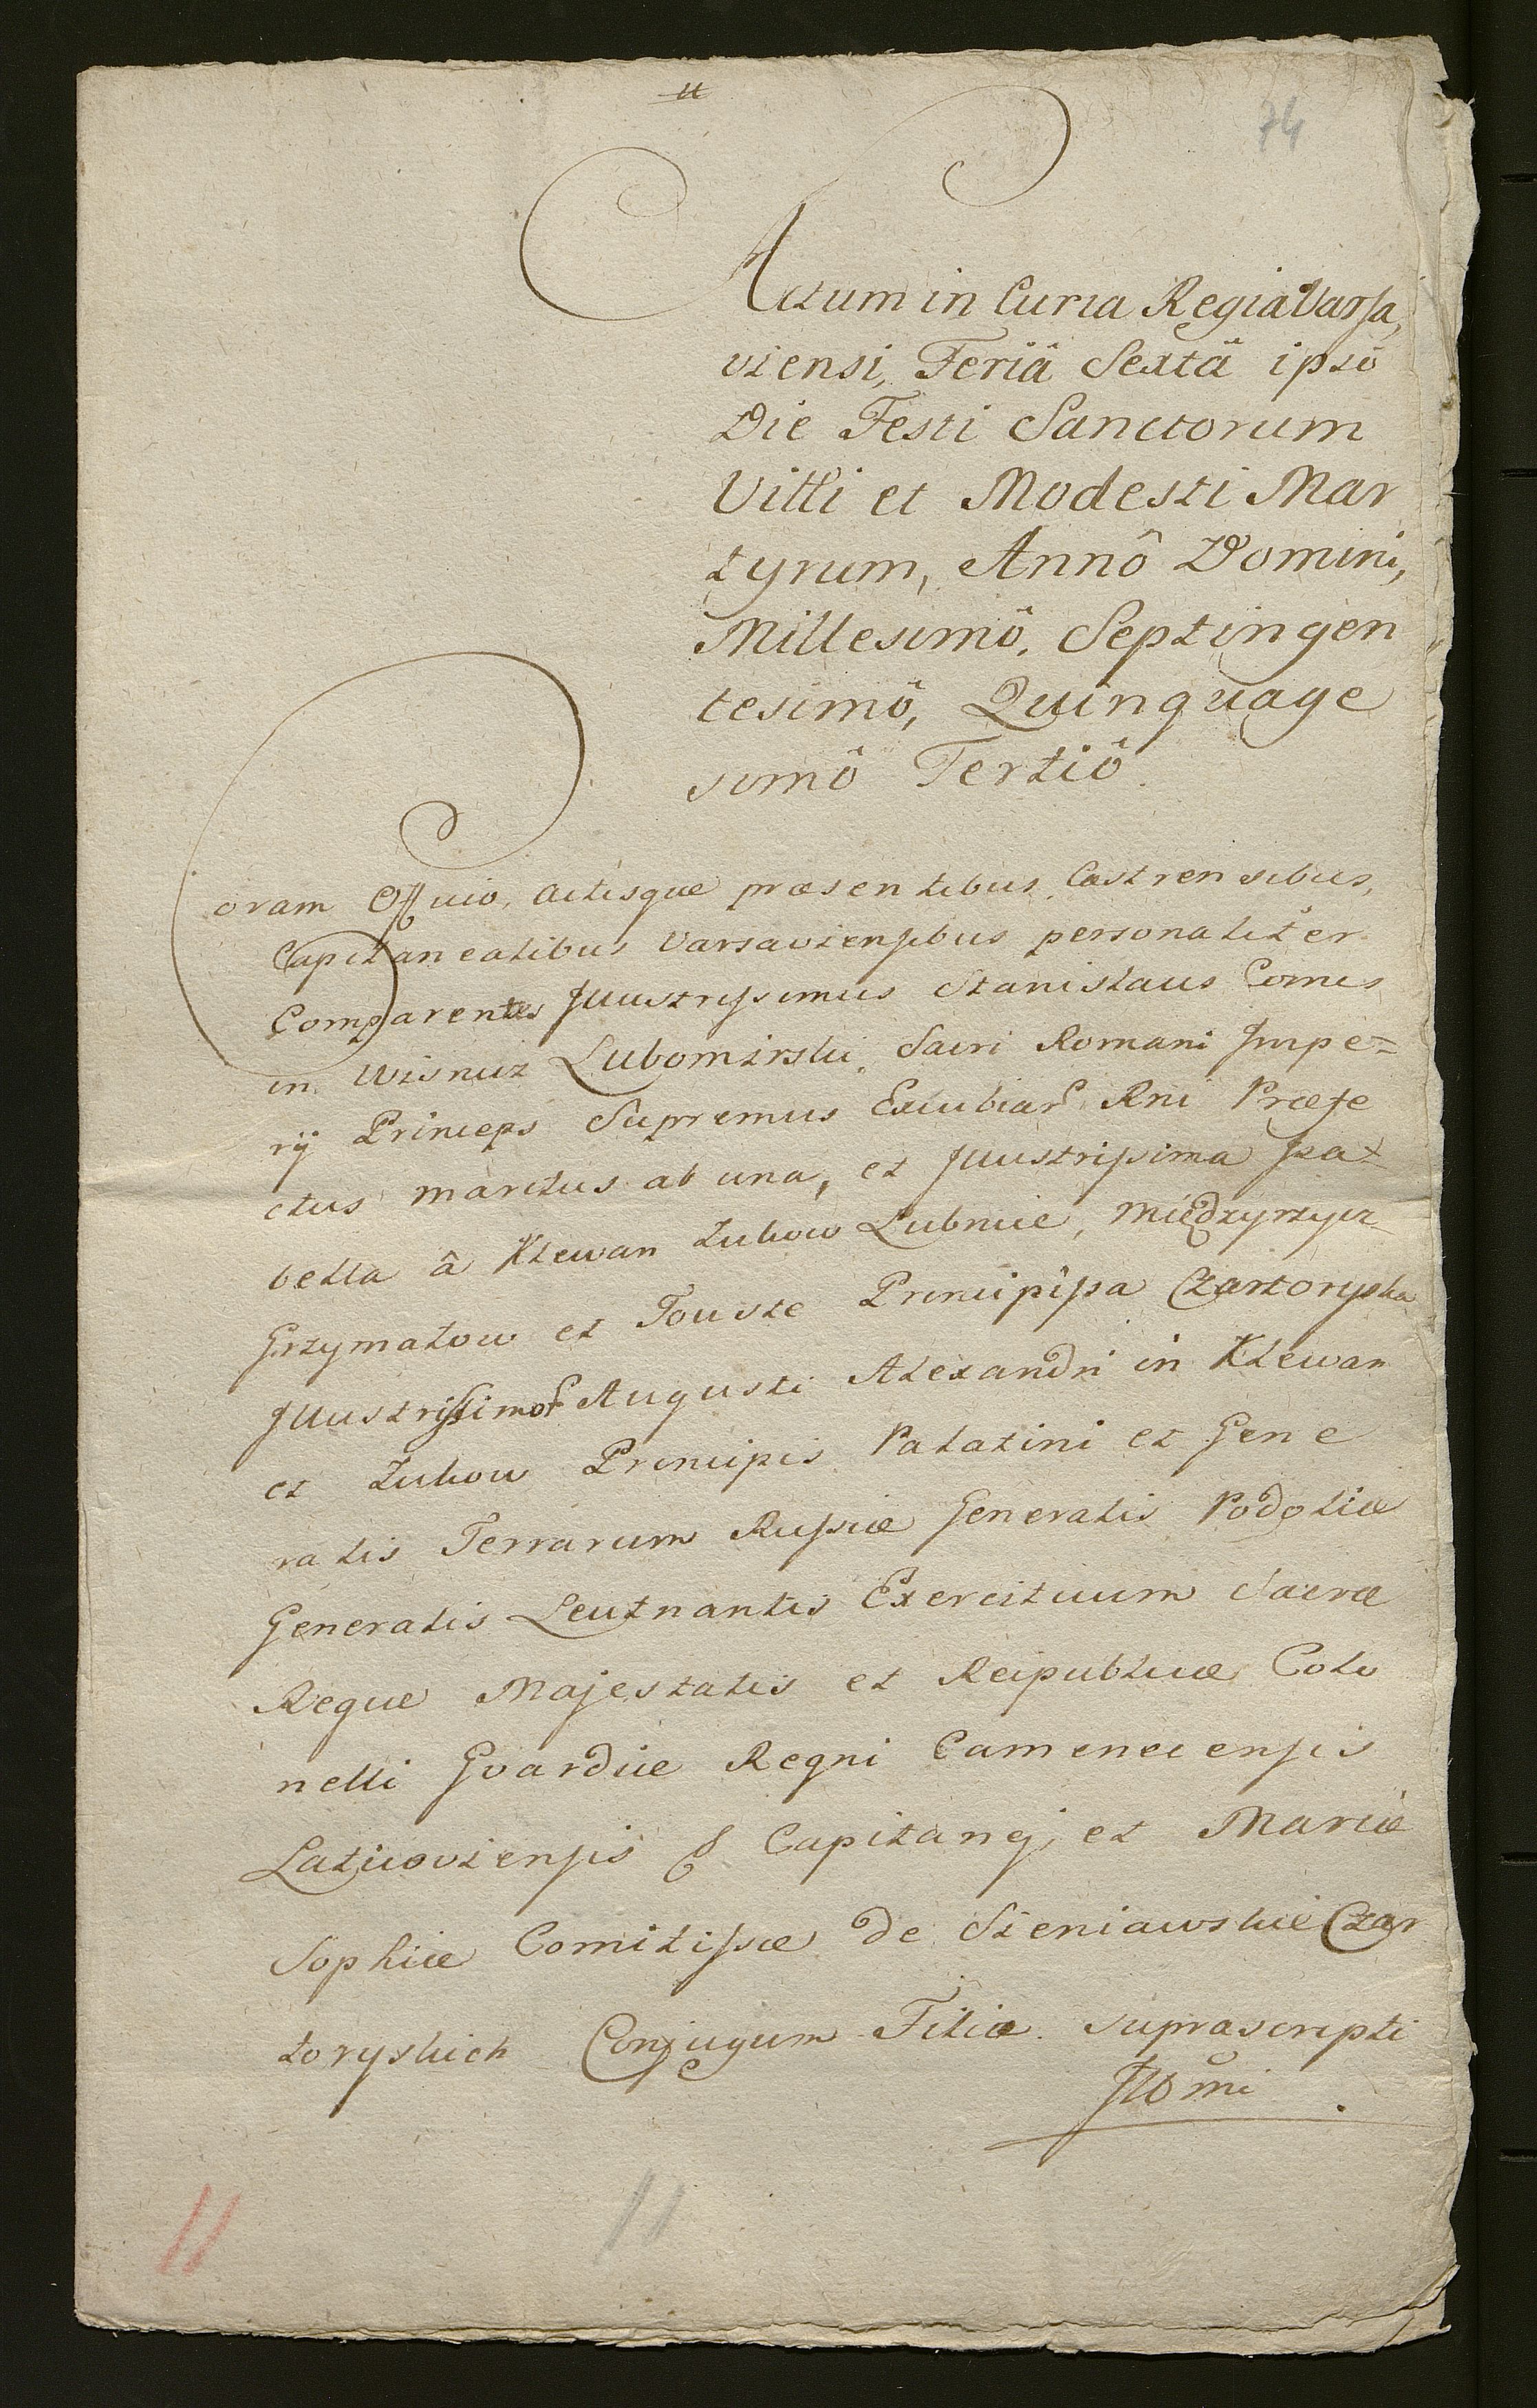 11
74
Actum in Curia Regia Varsa,
viensi, Feriâ Sextâ ipsô
Die Festi Sanctorum
Vitti et Modesti Mar
tyrum, Annô Domini,
Millesimô, Septingen
tesimô, Quinquage
simô Tertiô.
Coram Officio, Actisque præsentibus, Castrensibus,
Capitanealibus Varsaviensibus personaliter
Comparentes Illustrissimus Stanislaus Comes
in Wisnicz Lubomirski, Sacri Romani Impe=
rij Princeps Supremus Excubiar Rni Præfe
ctus maritus ab una, et Illustrissima Isa
bella â Klewan Zukow Lubnice, Międzyrzycz
Grzymałow et Touste Principissa Czartoryska
Illustrissimor Augusti Alexandri in Klewan
et Zukow Principis Palatini et Gene
ralis Terrarum Russiæ Generalis Podoliæ
Generalis Leutnantis Exercituum Sacræ
Regiæ Majestatis et Reipublicæ Colo
nelli Gvardiæ Regni Camenecensis
Laticoviensis & Capitanej, et Mariæ
Sophiæ Comitissæ de Sieniawskie Czar
toryskich Conjugum Filia suprascripti
Illŏmi
11
11